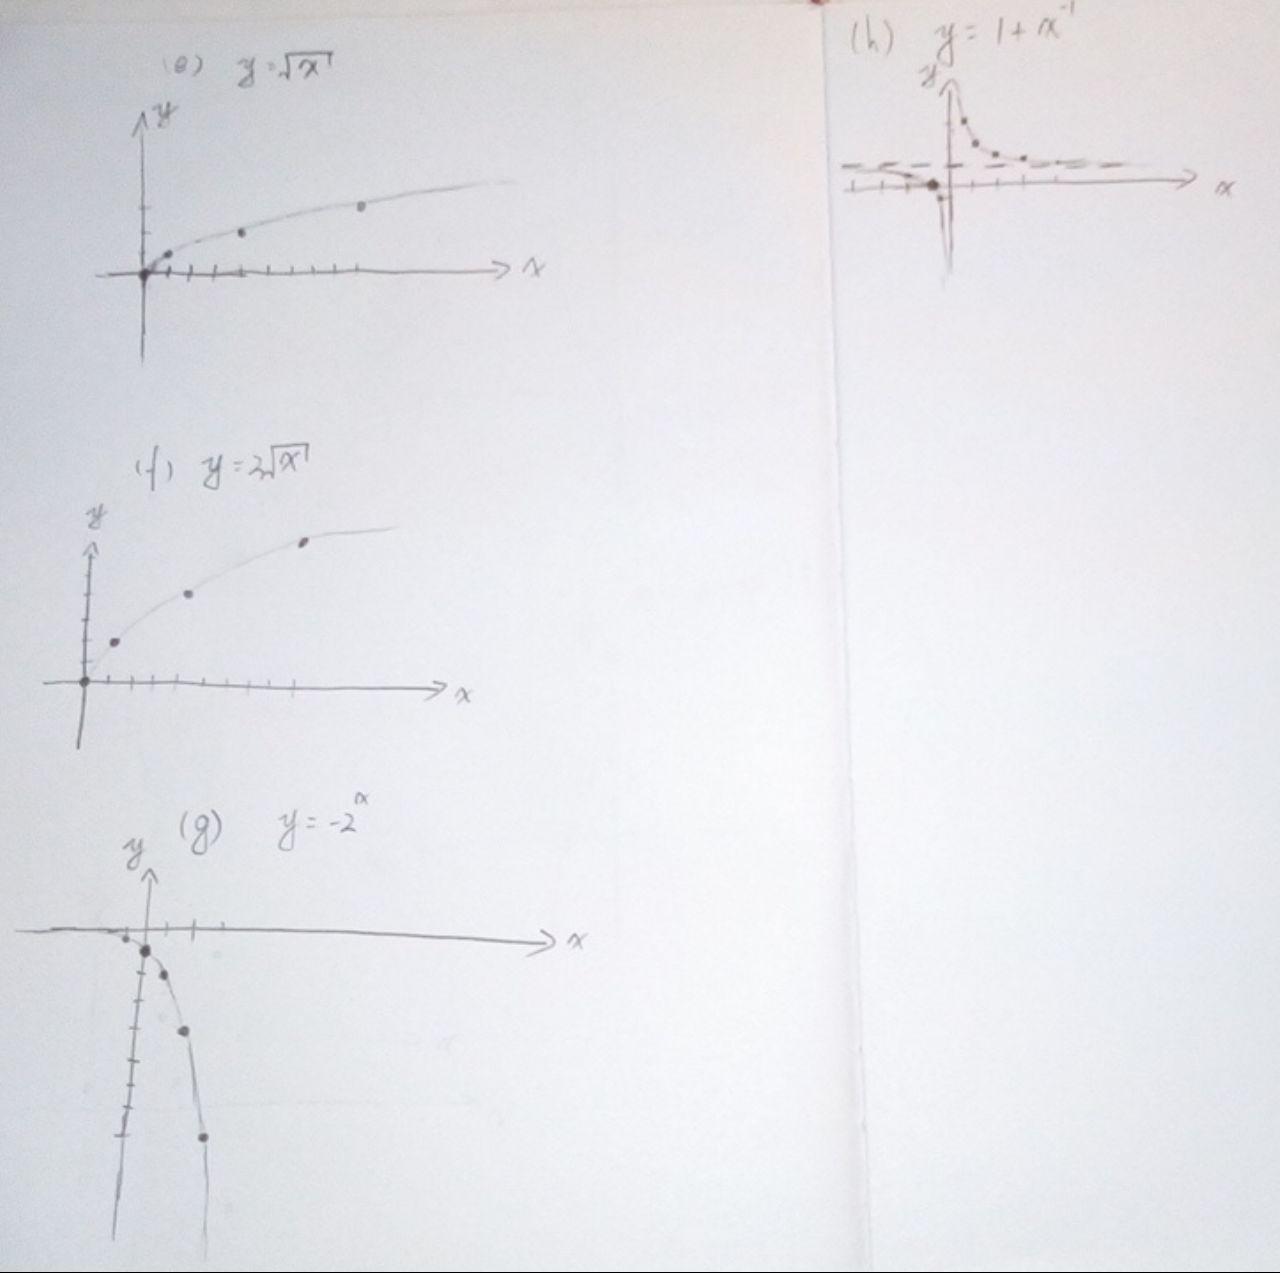 (e) y=√x
y
x
(f) y=2√x
y
x
(g) y=-2^x
y
x
(h) y=1+x^-1
y
x